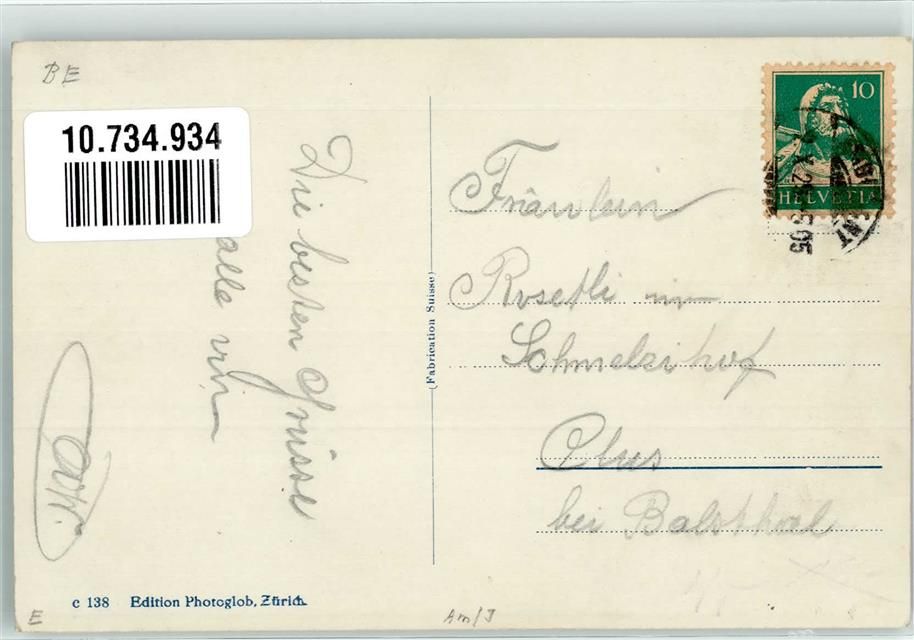 BE
10.734.934
Die besten Grüsse
alle
10
HELVETIA
Fräulein
Rosetli im
Schmelzihof
Clus
bei Balsthal
(Fabrication Suisse)
c 138 Edition Photoglob, Zürich.
E
Am/J